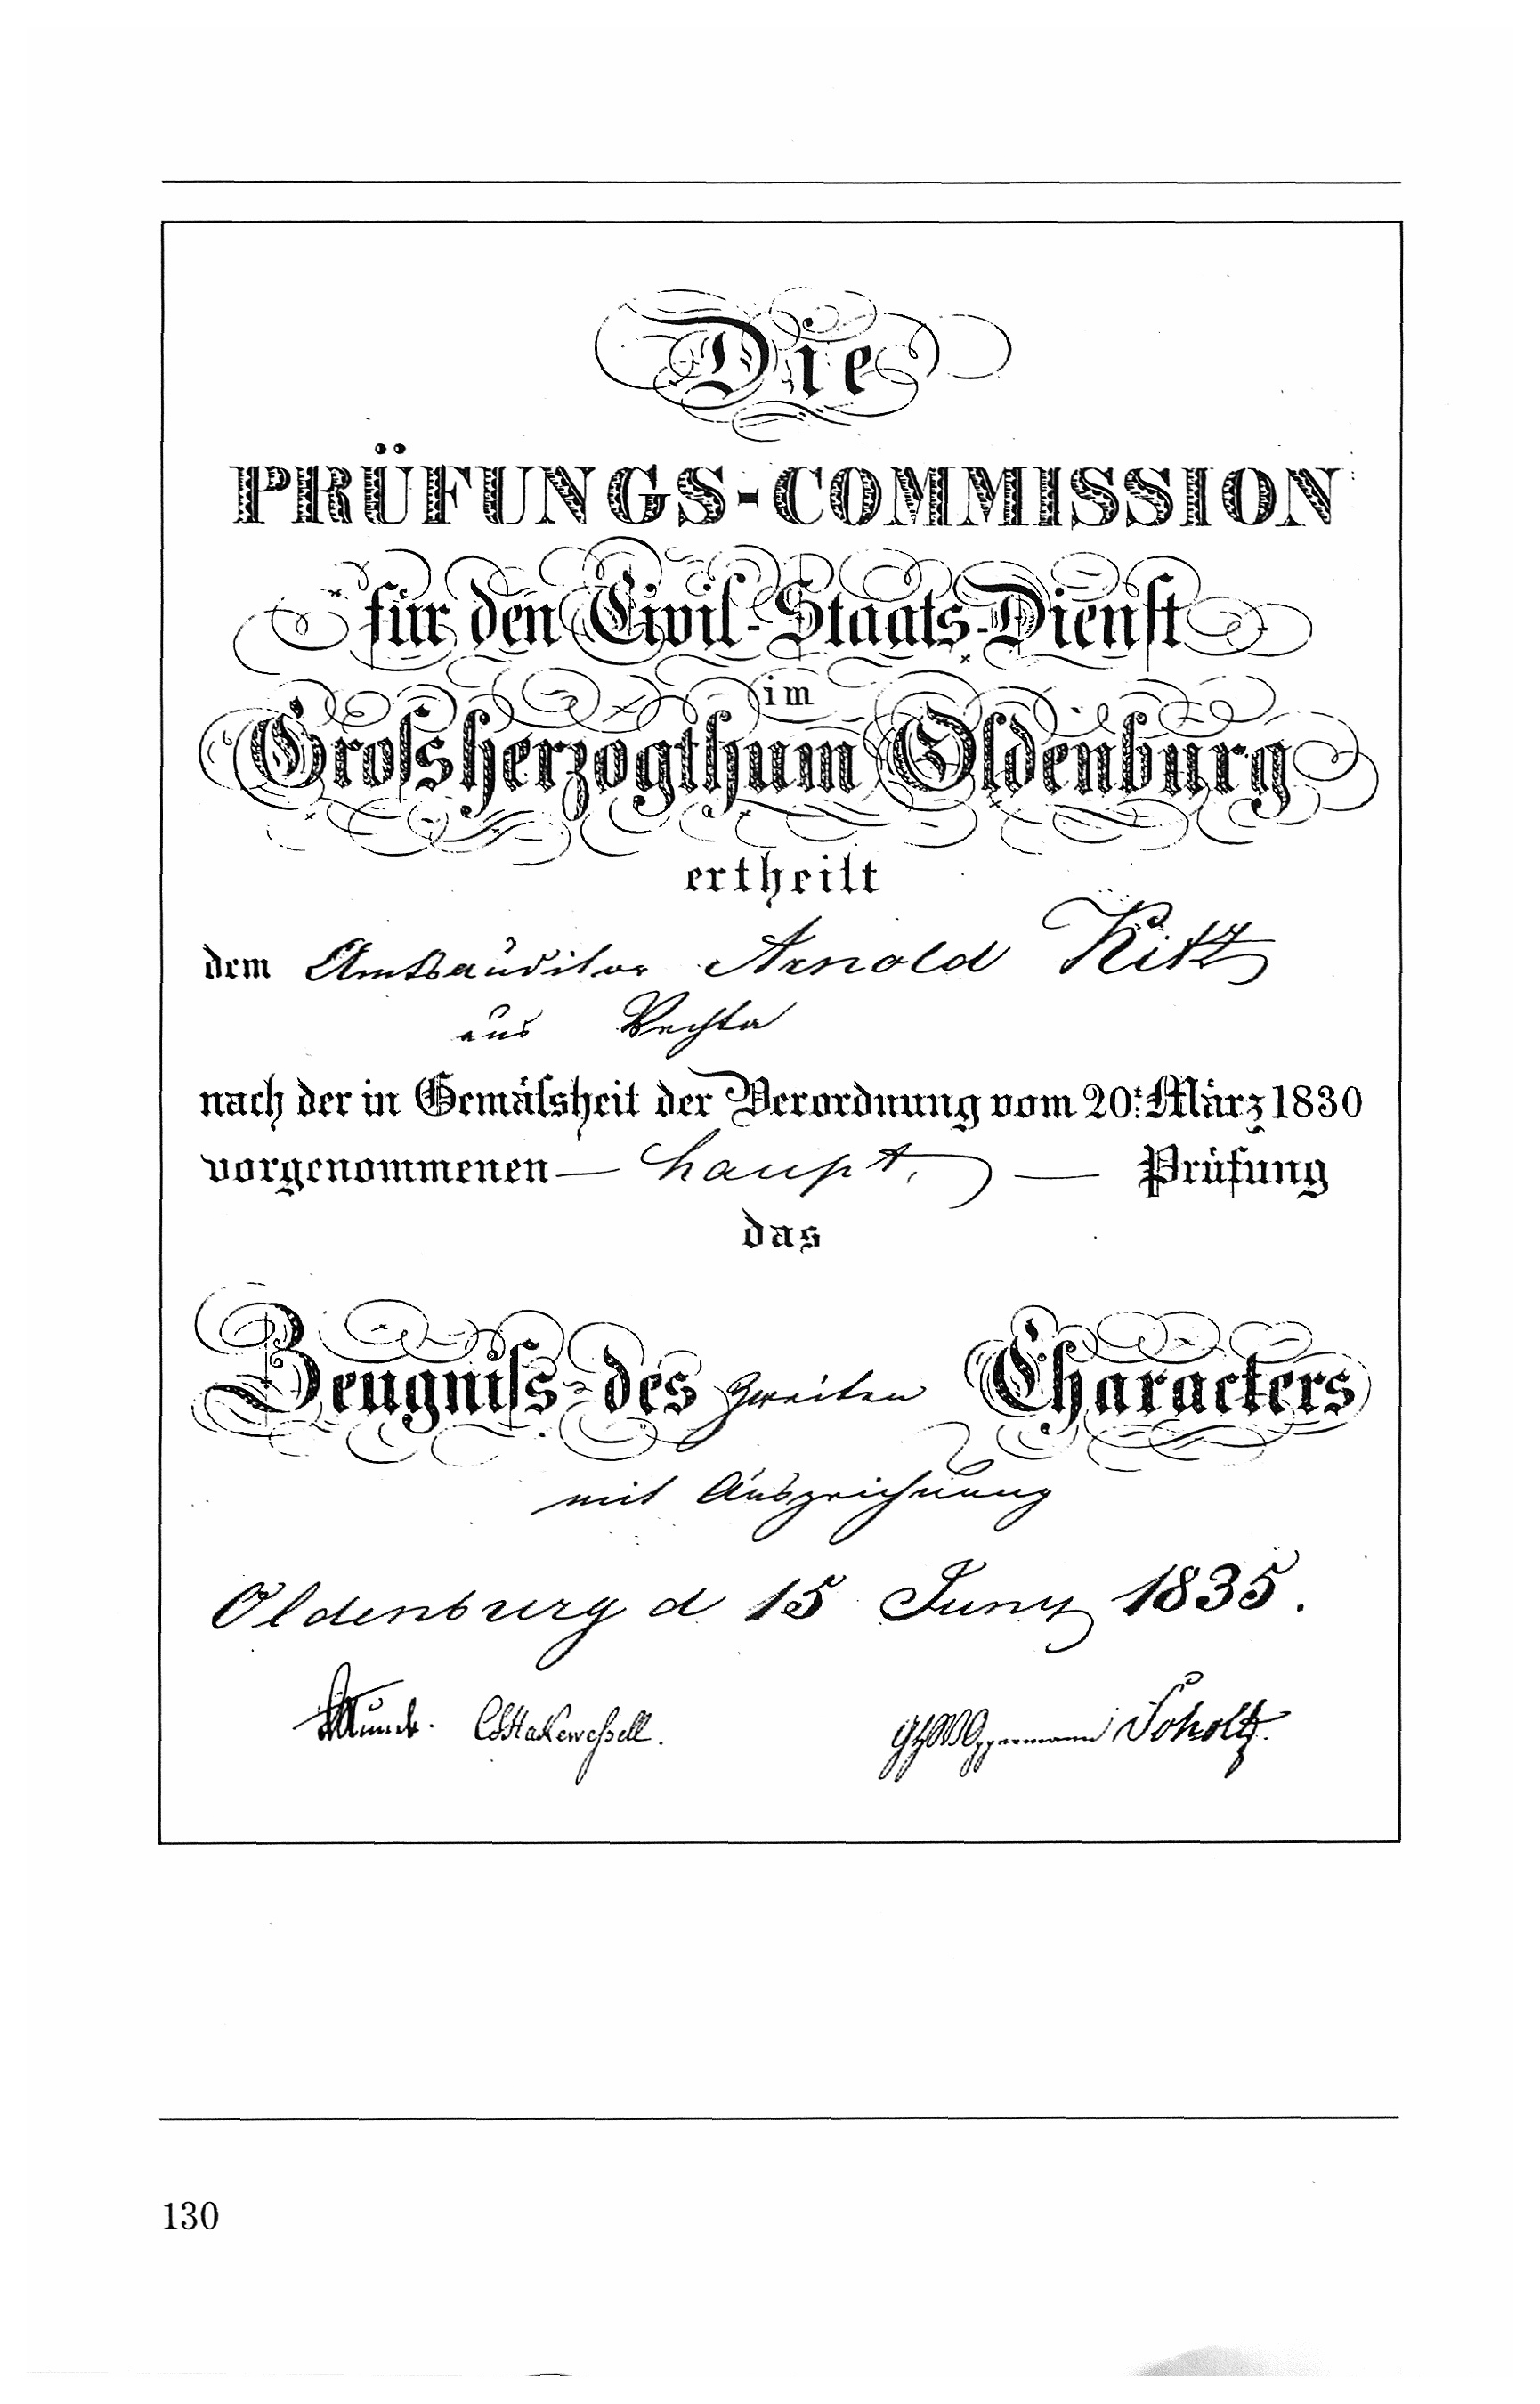 Die
PRÜFUNGS-COMMISSION
für den Civil-Staats-Dienst
im
Grossherzogthum Oldenburg
ertheilt
dem Amtsauditor Arnold Kitz
aus Vechta
nach der in Gemässheit der Verordnung vom 20t. März 1830
vorgenommenen — haupt. — Prüfung
das
Zeugniss des zweiten Characters
mit Auszeichnung
Oldenburg d 15 Juny 1835.
Runde. Scholtz.
130